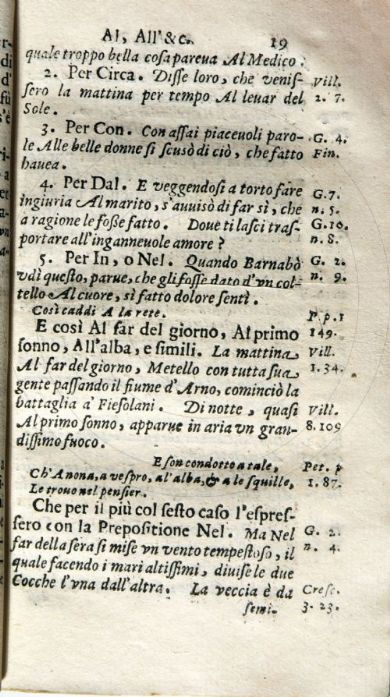 Al, All' &c. 19
quale troppo bella cosa pareua Al Medico.
2. Per Circa. Disse loro, che venis- Vill.
sero la mattina per tempo Al leuar del 2. 7.
Sole.
3. Per Con. Con assai piaceuoli paro- G. 4.
le Alle belle donne si scusò di ciò, che fatto Fin.
hauea.
4. Per Dal. E veggendosi a torto fare G. 7.
ingiuria Al marito, s'auuisò di far sì, che n. 5.
a ragione le fosse fatto. Doue ti lasci tras- G. 10.
portare all'inganneuole amore? n. 8.
5. Per In, o Nel. Quando Barnabò G. 2.
vdì questo, parue, che gli fosse dato d'vn col- n. 9.
tello Al cuore, sì fatto dolore sentì.
Così caddi A la rete. P. p. 1
E così Al far del giorno, Al primo 149.
sonno, All'alba, e simili. La mattina Vill.
Al far del giorno, Metello con tutta sua 1. 34.
gente passando il fiume d'Arno, cominciò la
battaglia a' Fiesolani. Di notte, quasi Vill.
Al primo sonno, apparue in aria vn gran- 8. 109
dissimo fuoco.
E son condotto a tale, Pet. p
Ch'A nona, a vespro, al'alba, & a le squille, 1. 87.
Le trouo nel pensier.
Che per il più col sesto caso l'espres-
sero con la Prepositione Nel. Ma Nel G. 2.
far della sera si mise vn vento tempestoso, il n. 4.
quale facendo i mari altissimi, diuise le due
Cocche l'vna dall'altra. La veccia è da Cresc.
semi- 3. 23.